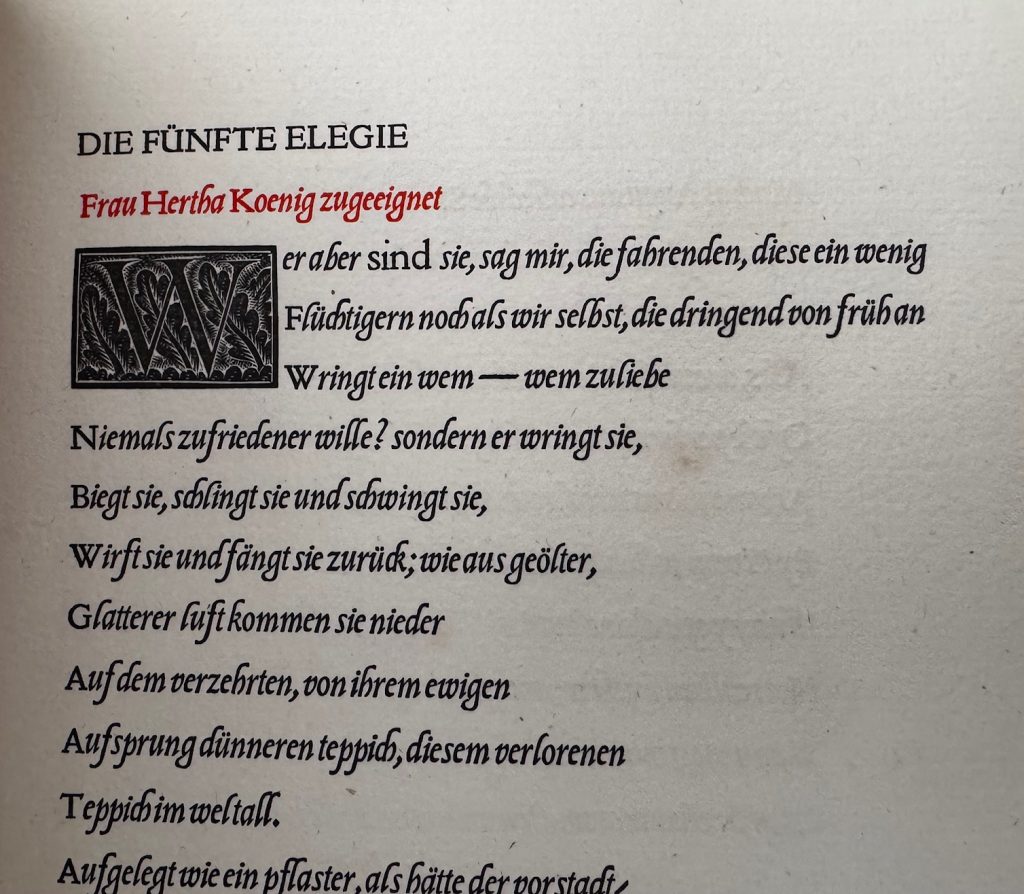 DIE FÜNFTE ELEGIE
Frau Hertha Koenig zugeeignet
Wer aber sind sie, sag mir, die fahrenden, diese ein wenig
Flüchtigern noch als wir selbst, die dringend von früh an
Wringt ein wem — wem zuliebe
Niemals zufriedener wille? sondern er wringt sie,
Biegt sie, schlingt sie und schwingt sie,
Wirft sie und fängt sie zurück; wie aus geölter,
Glatterer luft kommen sie nieder
Auf dem verzehrten, von ihrem ewigen
Aufsprung dünneren teppich, diesem verlorenen
Teppich im weltall.
Aufgelegt wie ein pflaster, als hätte der vorstadt-